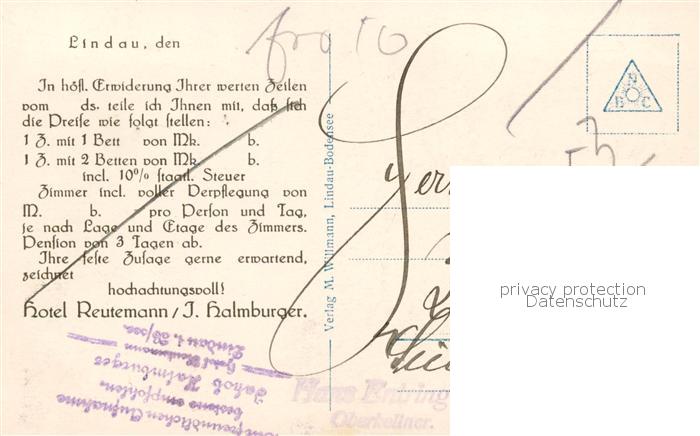 Lindau, den
In höfl. Erwiderung Ihrer werten Zeilen
vom ds. teile ich Ihnen mit, daß sich
die Preise wie folgt stellen:
1 Z. mit 1 Bett von Mk. b.
1 Z. mit 2 Betten von Mk. b.
incl. 10% staatl. Steuer
Zimmer incl. voller Verpflegung von
M. b. pro Person und Tag,
je nach Lage und Etage des Zimmers.
Pension von 3 Tagen ab.
Ihre feste Zusage gerne erwartend,
zeichnet
hochachtungsvoll!
Hotel Reutemann / J. Halmburger.
Verlag M. Willmann, Lindau-Bodensee
N
B C
privacy protection
Datenschutz
Hans
Oberkellner.
freundlichen Aufnahme
bestens empfohlen.
Jakob Halmburger
Hotel Reutemann
Lindau i. B/see